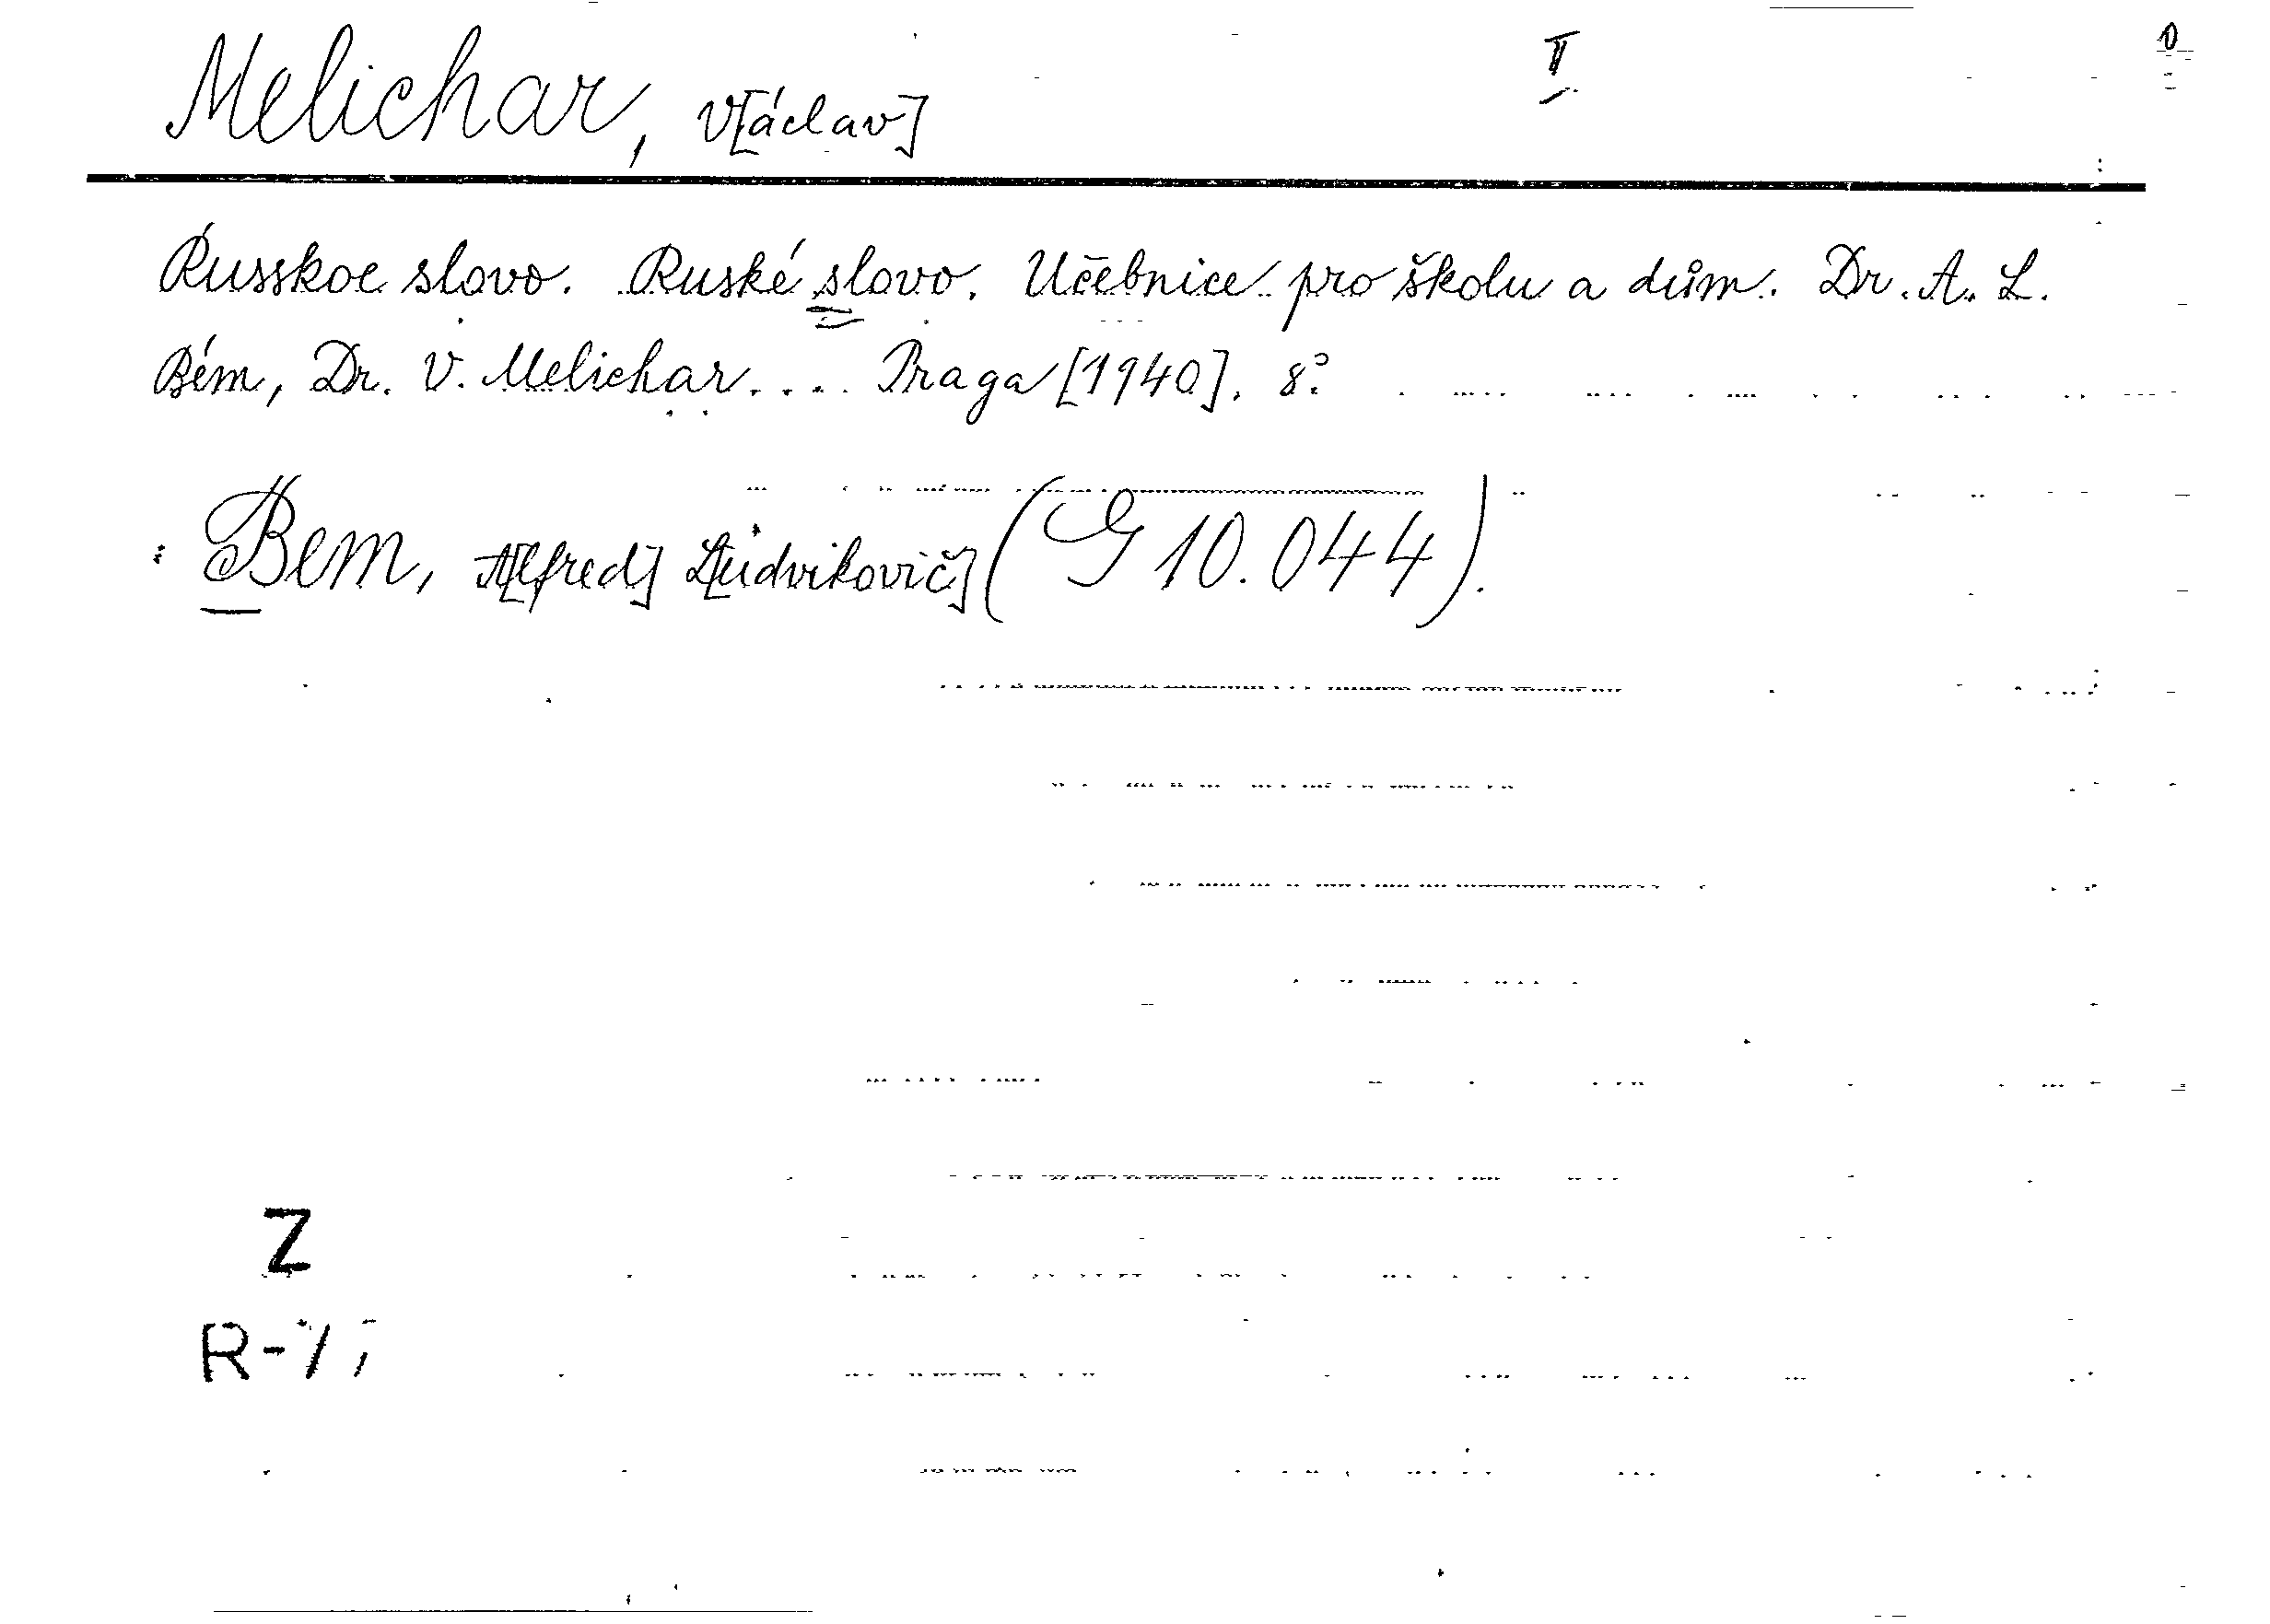 Melichar, V[áclav] II
Russkoe slovo. Ruské slovo. Učebnice pro školu a dům. Dr. A. L.
Bém, Dr. V. Melichar.... Praga [1940]. 8°.
: Bem, A[lfred] L[udvikovič] (G 10.044).
Z